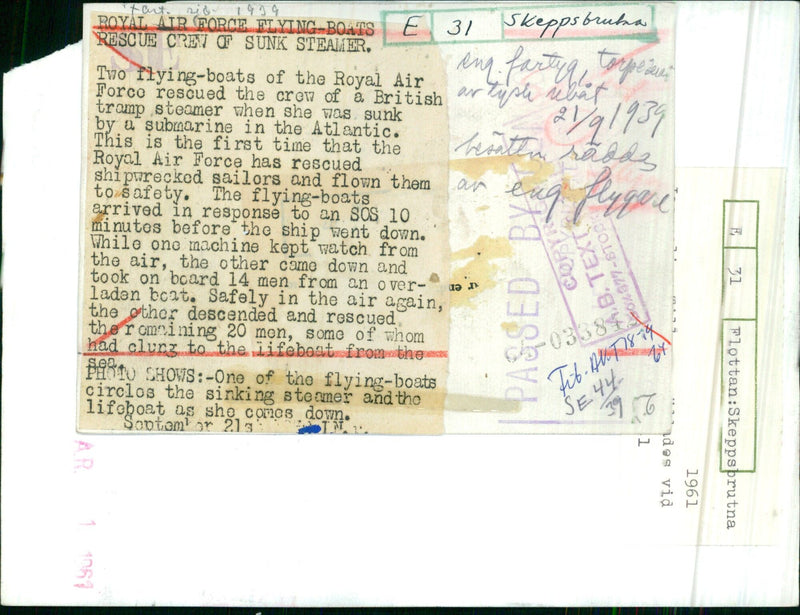 1939
ROYAL AIR FORCE FLYING-BOATS
RESCUE CREW OF SUNK STEAMER.
Two flying-boats of the Royal Air
Force rescued the crew of a British
tramp steamer when she was sunk
by a submarine in the Atlantic.
This is the first time that the
Royal Air Force has rescued
shipwrecked sailors and flown them
to safety. The flying-boats
arrived in response to an SOS 10
minutes before the ship went down.
While one machine kept watch from
the air, the other came down and
took on board 14 men from an over-
laden boat. Safely in the air again,
the other descended and rescued
the remaining 20 men, some of whom
had clung to the lifeboat from the
sea.
PHOTO SHOWS:-One of the flying-boats
circles the sinking steamer andthe
lifeboat as she comes down.
September 21s
E 31 Skeppsbrutna
eng. fartyg,
av tysk ubåt
21/9 1939
besättn rädda
av eng flygare
PASSED BY
COPYRI
AB. TEXT
STOC
SE-44-
39
E 31 Flottan:Skeppsbrutna
1961
des vid
1
AR 1